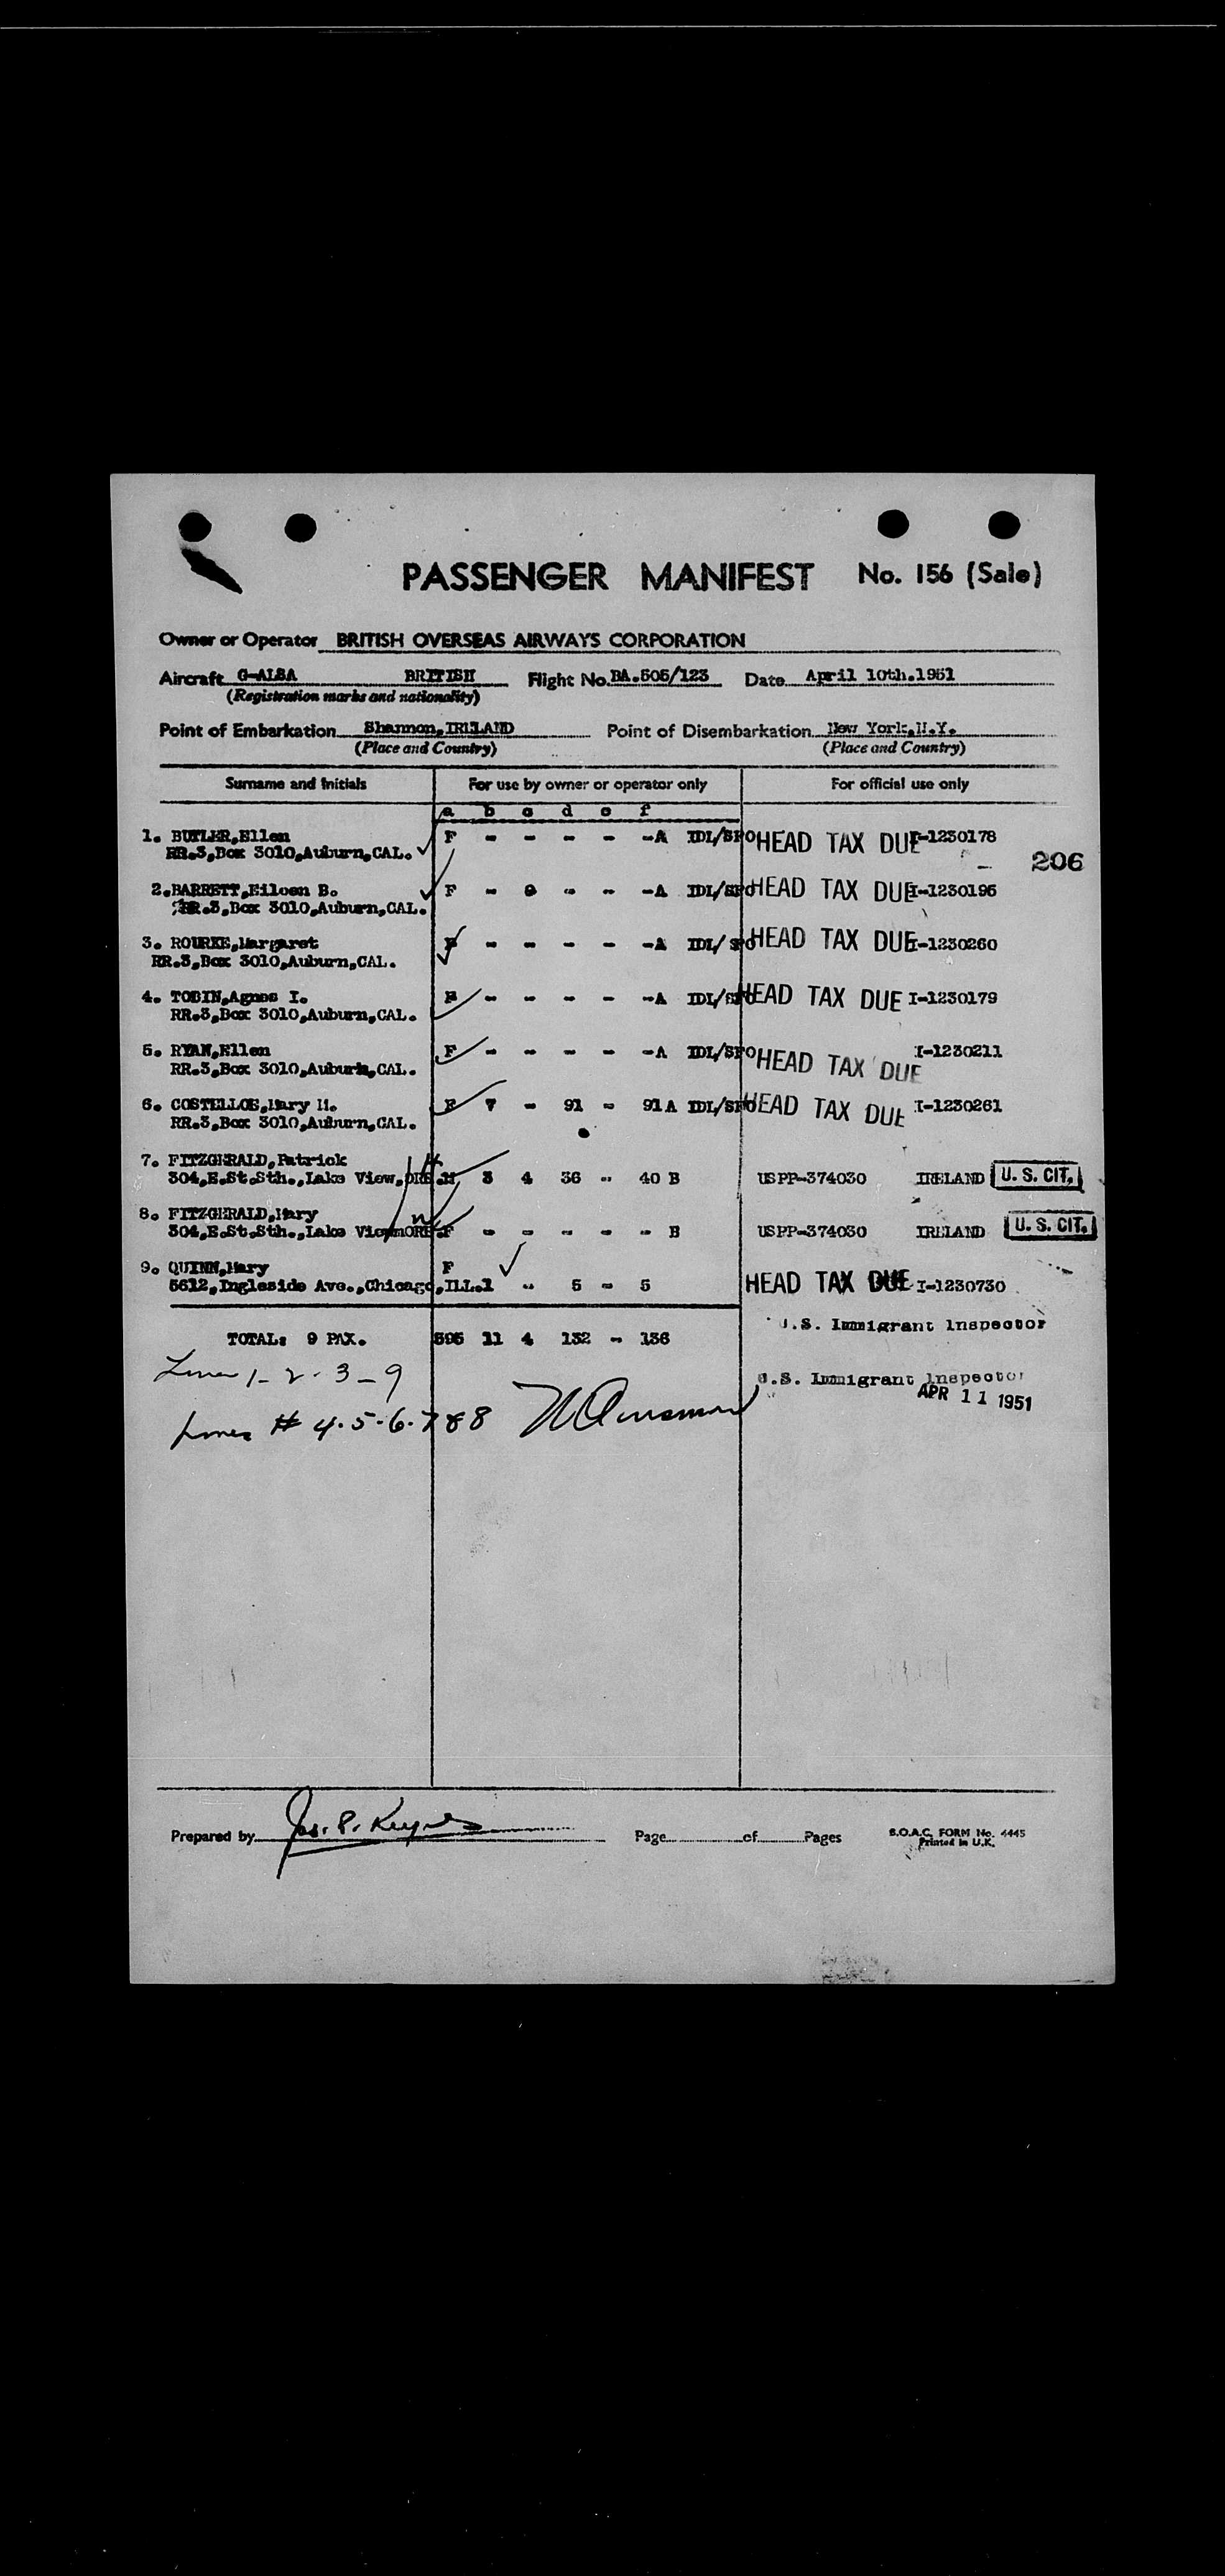 PASSENGER MANIFEST No. 156 (Sale)
Owner or Operator BRITISH OVERSEAS AIRWAYS CORPORATION
Aircraft G-ALSA BRITISH Flight No. BA.505/123 Date April 10th.1951
(Registration marks and nationality)
Point of Embarkation Shannon,IRELAND Point of Disembarkation New York,N.Y.
(Place and Country) (Place and Country)
Surname and Initials For use by owner or operator only For official use only
a b c d e f
1. BUTLER,Ellen F - - - - -A IDL/SFO HEAD TAX DUE I-1230178
RR.3,Box 3010,Auburn,CAL.
206
2.BARRETT,Eileen B. F - - - -A IDL/SFO HEAD TAX DUE I-1230195
RR.3,Box 3010,Auburn,CAL.
3. ROURKE,Margaret F - - - - -A IDL/SFO HEAD TAX DUE I-1230260
RR.3,Box 3010,Auburn,CAL.
4. TOBIN,Agnes I. F - - - - -A IDL/SFO HEAD TAX DUE I-1230179
RR.3,Box 3010,Auburn,CAL.
5. RYAN,Ellen F - - - - -A IDL/SFO HEAD TAX DUE I-1230211
RR.3,Box 3010,Auburn,CAL.
6. COSTELLOE,Mary M. F 7 - 91 - 91 A IDL/SFO HEAD TAX DUE I-1230261
RR.3,Box 3010,Auburn,CAL.
7. FITZGERALD,Patrick
304,E.St.Sth.,Lake View,ORE.M 3 4 36 - 40 B USPP-374030 IRELAND U. S. CIT.
8. FITZGERALD,Mary
304,E.St.Sth.,Lake View,ORE.F - - - - - B USPP-374030 IRELAND U. S. CIT.
9. QUINN,Mary F
5612,Ingleside Ave.,Chicago,ILL.1 - 5 - 5 HEAD TAX DUE I-1230730
U.S. Immigrant Inspector
TOTAL: 9 PAX. 595 11 4 132 - 136
Lines 1- 2 - 3 - 9
U.S. Immigrant Inspector
APR 11 1951
Lines # 4.5.6.7 & 8
Prepared by Page of Pages B.O.A.C. FORM No. 4445
Printed in U.K.